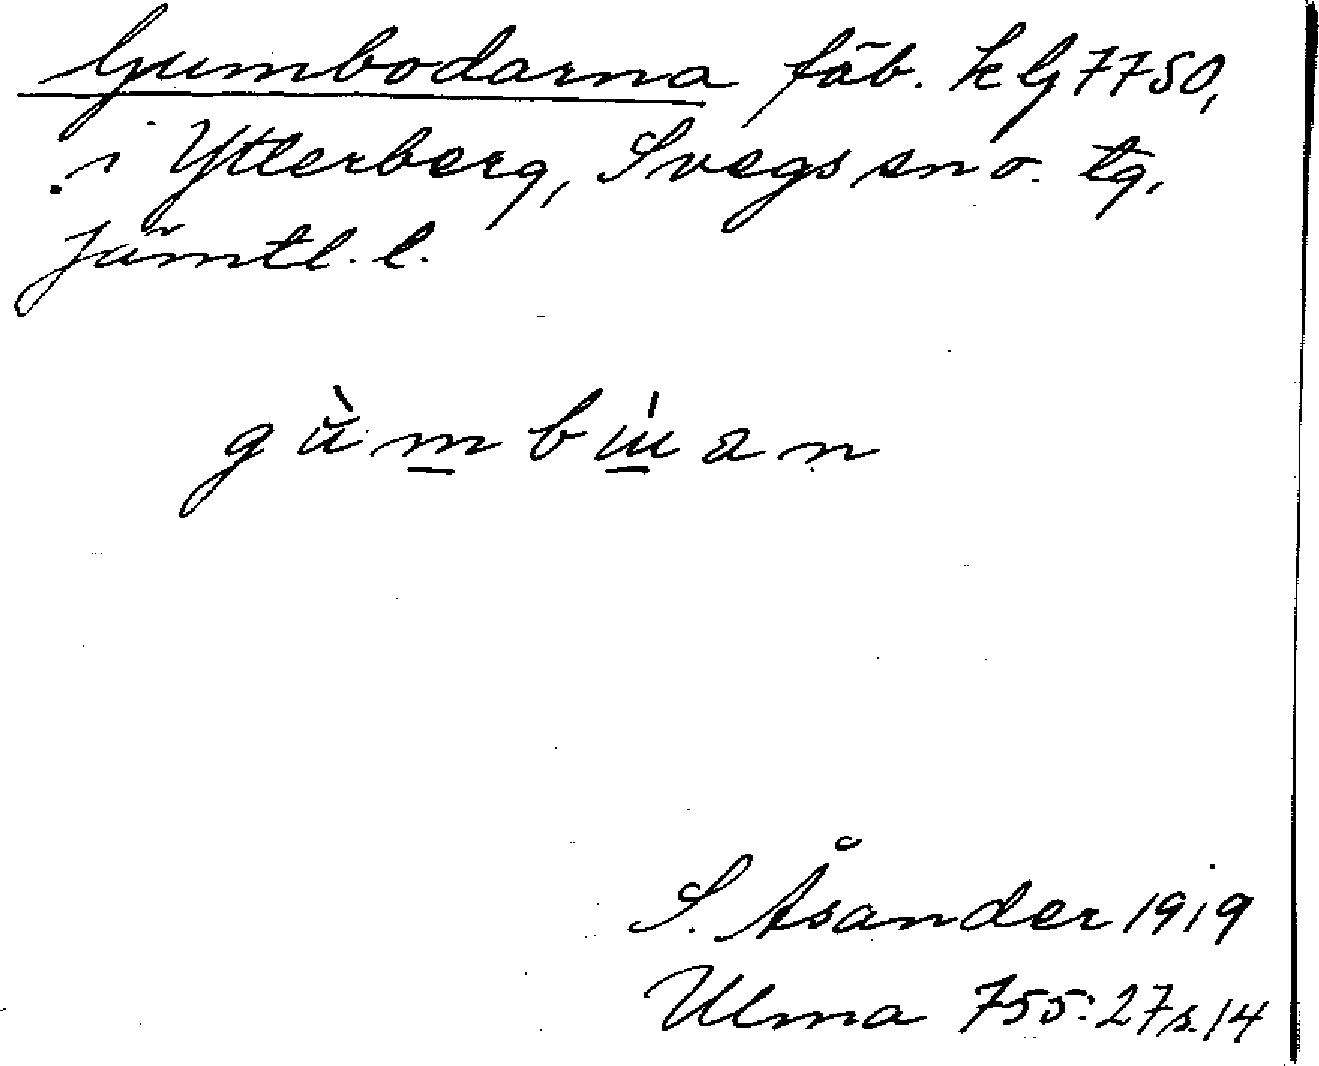 Gumbodarna fäb. k G 7750,
i Ytterberg, Svegs sn o. tg,
Jämtl. l.
gùmbɯ́an
S. Åsander 1919
Ulma 755:27 s. 14